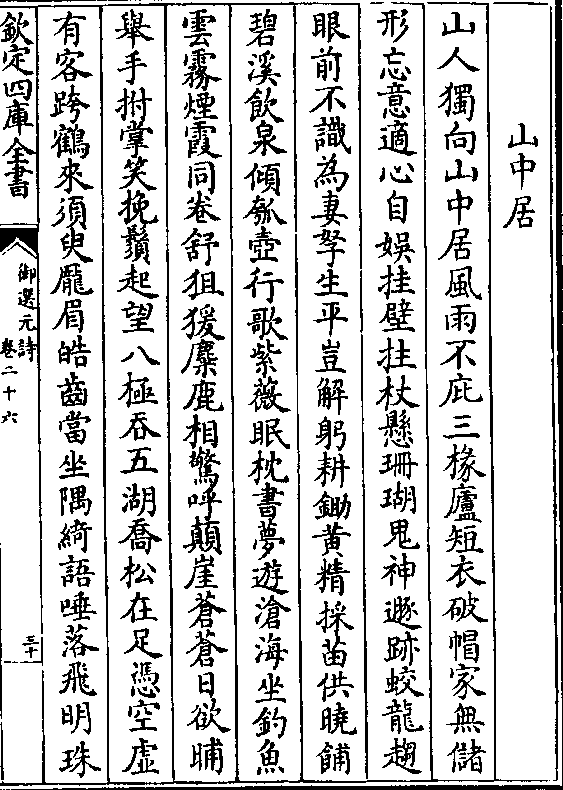 山中居
山人獨向山中居風雨不庇三椽廬短衣破帽家無儲
形忘意適心自娛挂壁拄杖懸珊瑚鬼神遯跡蛟龍趨
眼前不識為妻孥生平豈解躬耕鋤黄精採苗供曉餔
碧溪飲泉傾瓠壺行歌紫薇眠枕書夢遊滄海坐釣魚
雲霧煙霞同卷舒狙猨麋鹿相驚呼顛崖蒼蒼日欲晡
舉手拊掌笑挽鬚起望八極吞五湖喬松在足憑空虛
有客跨鶴來須臾厖眉皓齒當坐隅綺語唾落飛明珠
欽定四庫全書
御選元詩
卷二十六
三十